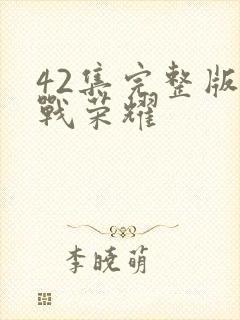 42集完整版
戰荣耀
李晓萌